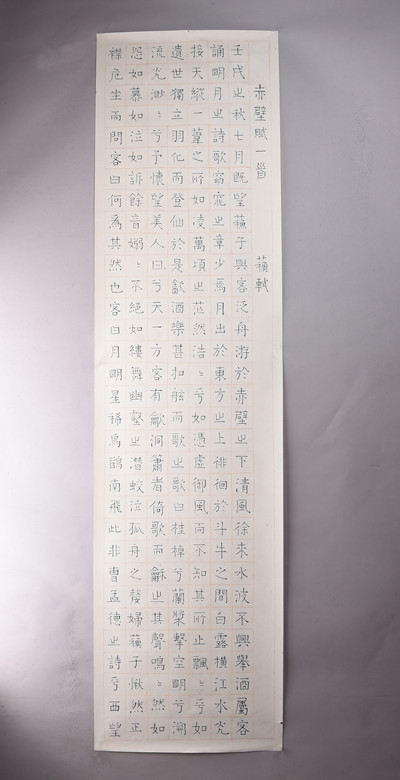 赤壁賦一首 蘇軾
壬戌之秋七月既望蘇子與客泛舟游於赤壁之下清風徐來水波不興舉酒屬客
誦明月之詩歌窈窕之章少焉月出於東方之上徘徊於斗牛之間白露橫江水光
接天縱一葦之所如凌萬頃之茫然浩〻兮如憑虛御風而不知其所止飄〻兮如
遺世獨立羽化而登仙於是㱃酒樂甚扣舷而歌之歌曰桂棹兮蘭槳擊空明兮溯
流光渺〻兮予懷望美人曰兮天一方客有龡洞簫者倚歌而龢之其聲鳴〻然如
怨如慕如泣如訴餘音嫋〻不絕如縷舞幽壑之潛蛟泣孤舟之嫠婦蘇子愀然正
襟危坐而問客曰何為其然也客曰月明星稀烏鵲南飛此非曹孟德之詩乎西望